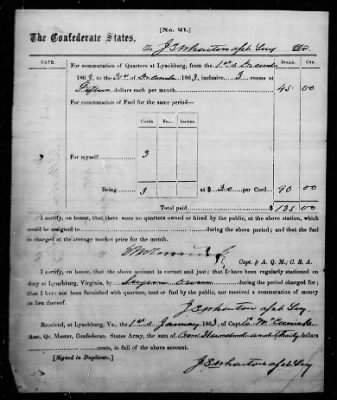 [No. 21.]
The Confederate States,
To J S Wharton apt Surg Dr.
DATE. DOLLS. CTS.
For commutation of Quarters at Lynchburg, from the 1st of December
1863, to the 31st of December 1863, inclusive, 3 rooms at
Fifteen dollars each per month. 45 00
For commutation of Fuel for the same period—
Cords. Feet. Inches.
For myself 3
Being 3 at $30 per Cord. 90 00
Total paid $ 135 00
I certify, on honor, that there were no quarters owned or hired by the public, at the above station, which
could be assigned to during the above period; and that the fuel
is charged at the average market price for the month.
Capt & A. Q. M., C. S. A.
I certify, on honor, that the above account is correct and just; that I have been regularly stationed on
duty at Lynchburg, Virginia, by during the period charged for; that
I have not been furnished with quarters, tent or fuel by the public, nor received a commutation of money
in lieu thereof.
J S Wharton apt Surg
Received, at Lynchburg, Va. the 1st of January 1863, of Capt
Asst. Qr. Master, Confederate States Army, the sum of One Hundred and thirty dollars
cents, in full of the above account.
[Signed in Duplicate.]
J S Wharton apt Surg